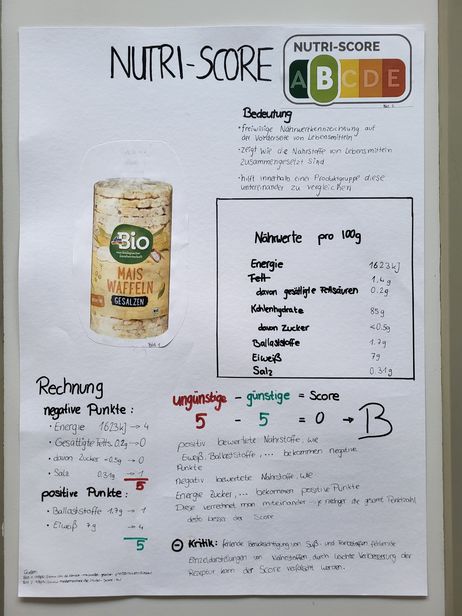 NUTRI-SCORE
NUTRI-SCORE
A B C D E
Bild 2
Bedeutung
• freiwillige Nährwertkennzeichnung auf
der Vorderseite von Lebensmitteln
• zeigt wie die Nährstoffe von Lebensmitteln
zusammengesetzt sind
• hilft innerhalb einer Produktgruppe diese
untereinander zu vergleichen
dm
Bio
MAIS
WAFFELN
GESALZEN
Bild 1
Nährwerte pro 100g
Energie 1623kJ
Fett 1.4g
davon gesättigte Fettsäuren 0.2g
Kohlenhydrate 85g
davon Zucker <0.5g
Ballaststoffe 1.7g
Eiweiß 7g
Salz 0.31g
Rechnung
negative Punkte:
• Energie 1623kJ → 4
• Gesättigte Fetts. 0.2g → 0
• davon Zucker <0.5g → 0
• Salz 0.31g → 1
5
positive Punkte:
• Ballaststoffe 1.7g → 1
• Eiweiß 7g → 4
5
ungünstige - günstige = Score
5 - 5 = 0 → B
positiv bewertete Nährstoffe, wie
Eiweiß, Ballaststoffe, ... bekommen negative
Punkte
negativ bewertete Nährstoffe, wie
Energie Zucker, ... bekommen positive Punkte
Diese verrechnet man miteinander → je niedriger die gesamt Punktzahl
desto besser der Score
Kritik: fehlende Berücksichtigung von Süß- und Farbstoffen, fehlende
Einzeldarstellungen von Nährstoffen, durch leichte Verbesserung der
Rezeptur kann der Score verfälscht werden.